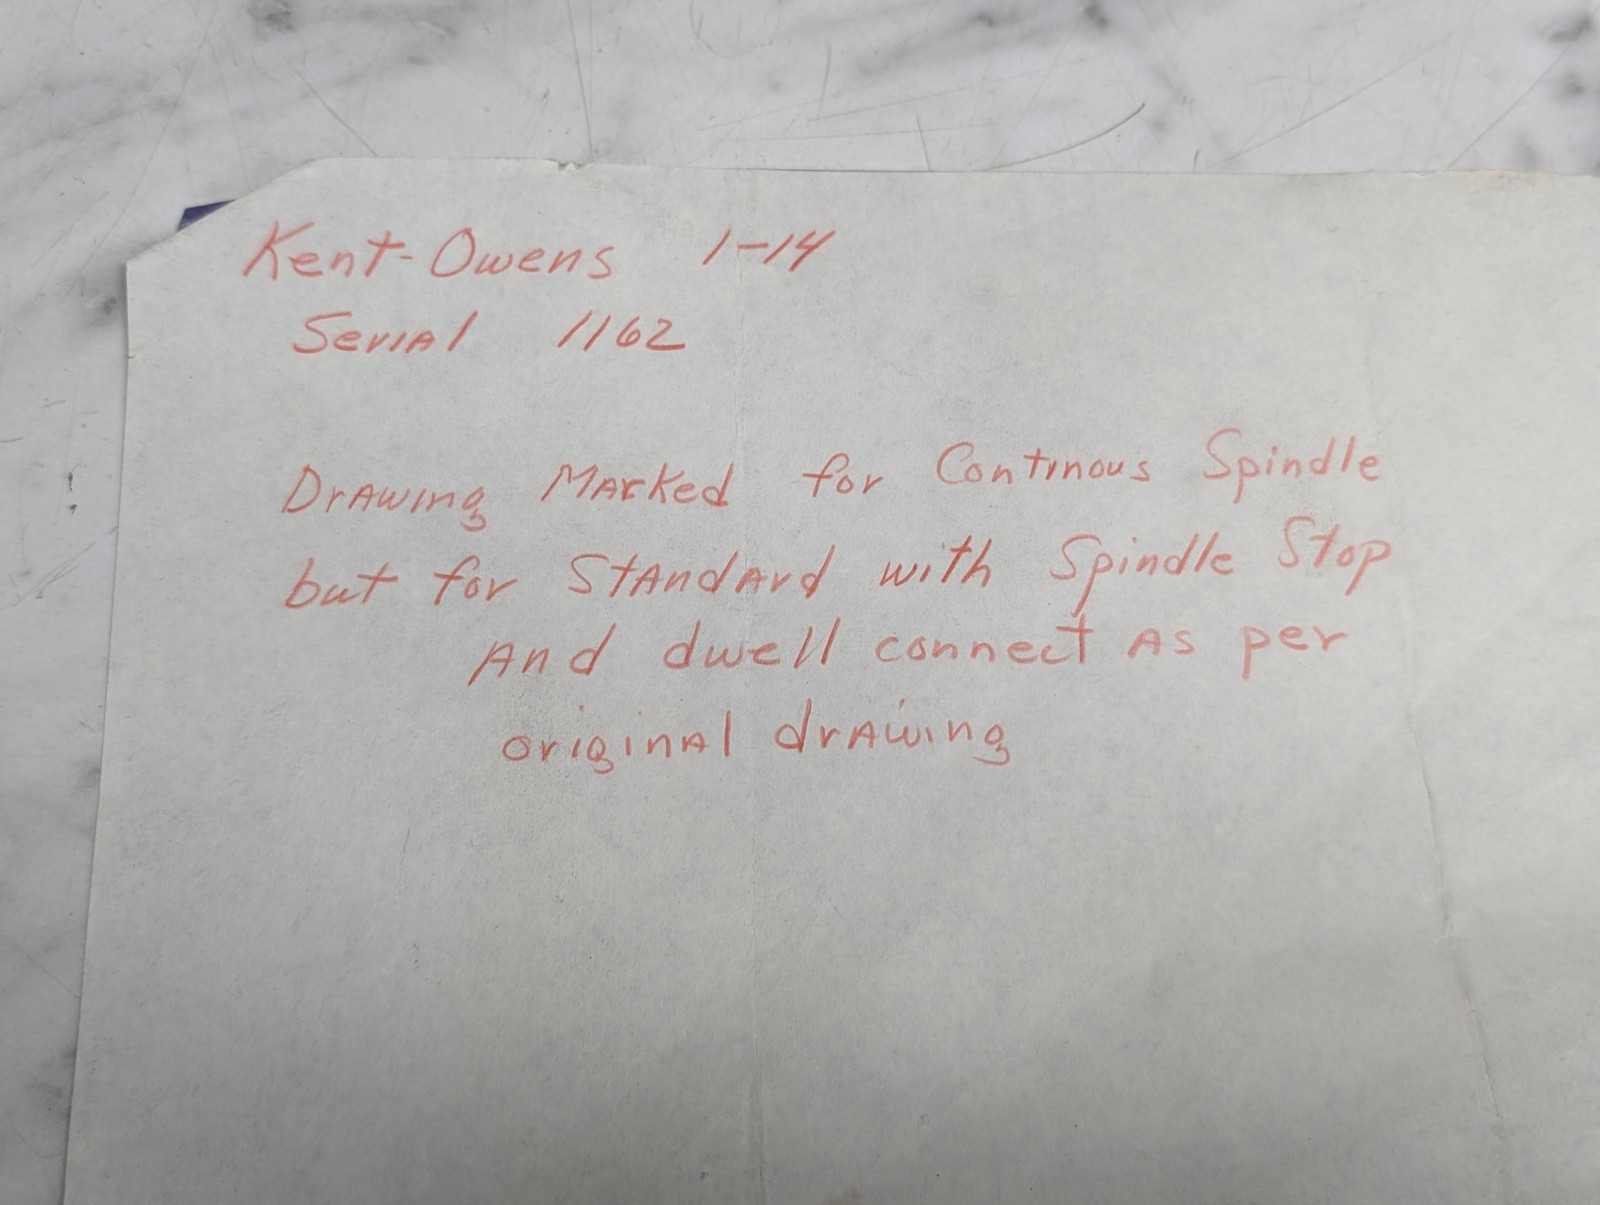 Kent-Owens 1-14
Serial 1162
Drawing Marked for Continous Spindle
but for Standard with Spindle Stop
And dwell connect As per
original drawing